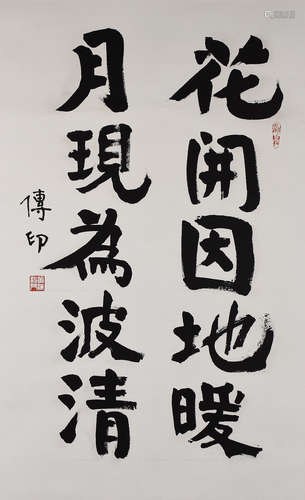 花開因地暖
月現為波清
傳印